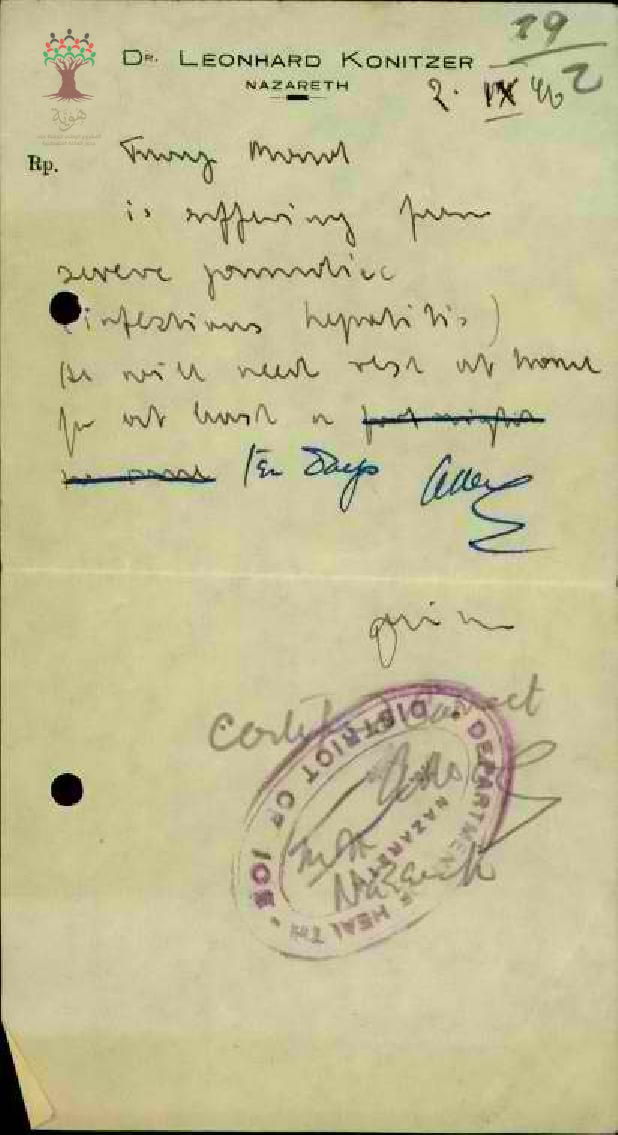 19
2
DR. LEONHARD KONITZER
NAZARETH
هوية
2. IX 46
Rp.
is suffering from
severe jaundice
(infectious hepatitis)
He will need rest at home
for at least a fortnight
Ten Days
Certified Correct
DEPARTMENT OF HEALTH
DISTRICT OF
NAZARETH
Nazareth